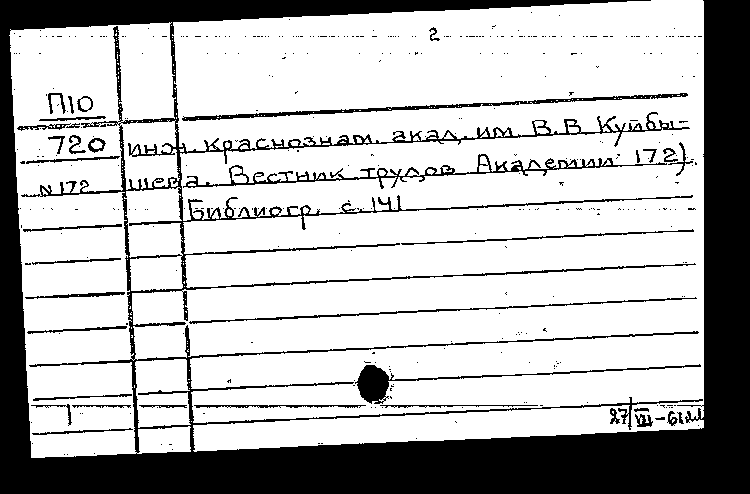 2
П10
720 инж. краснознам. акад. им. В.В Куйбы-
N172 шева. Вестник трудов Академии 172)
Библиогр. с. 141
27/VIII-61